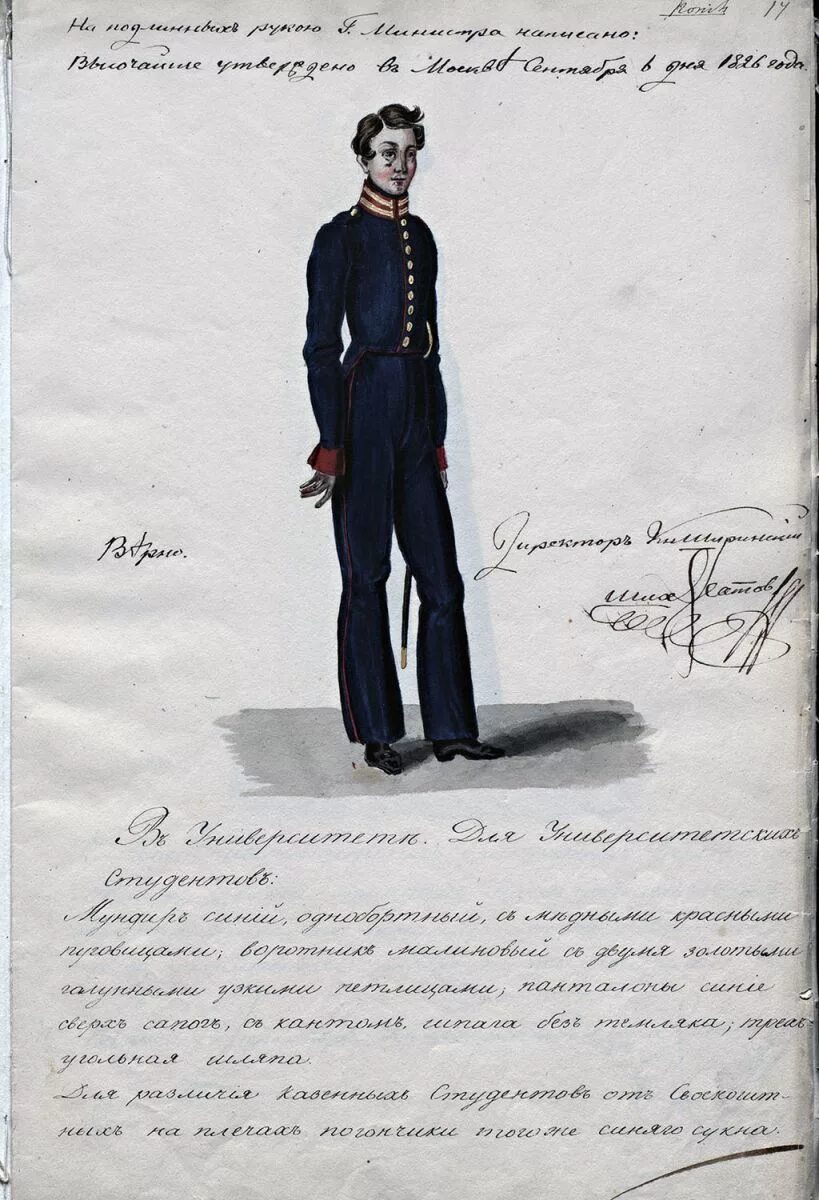 Копія 17
На подлинныхъ рукою Г. Министра написано:
Высочайше утверждено въ Москвѣ Сентября 6 дня 1826 года.
Вѣрно.
Директоръ
Въ Университетѣ. Для Университетскихъ
Студентовъ:
Мундиръ синій, однобортный, съ мѣдными красными
пуговицами; воротникъ малиновый съ двумя золотыми
галунными узкими петлицами; панталоны синіе
сверхъ сапогъ, съ кантомъ, шпага безъ темляка; трех-
угольная шляпа.
Для различія казенныхъ Студентовъ отъ Своекошт-
ныхъ на плечахъ погончики тогоже синяго сукна.